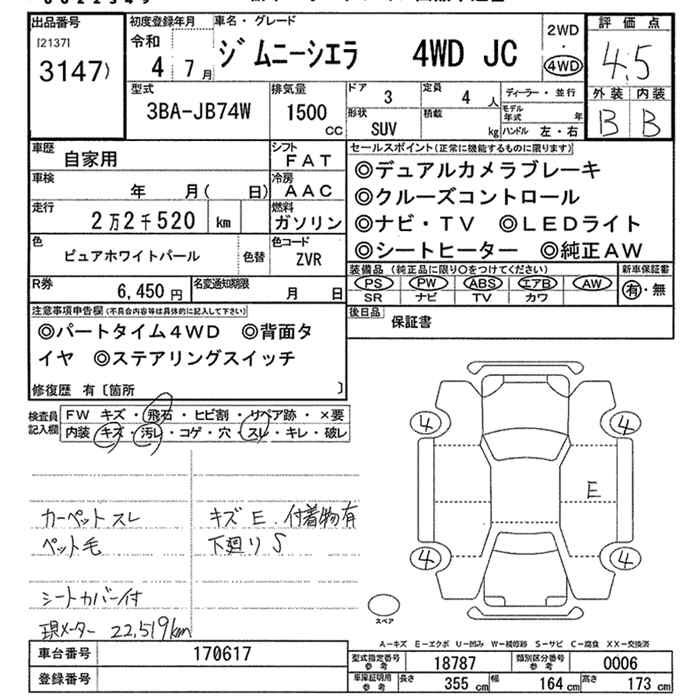 出品番号
[2137]
3147)
初度登録年月
令和
4 7月
車名・グレード
ジムニーシエラ 4WD JC
2WD
・
4WD
評価点
4.5
外装 内装
B B
型式
3BA-JB74W
排気量
1500
CC
ドア 3
定員 4人
形状
SUV
積載 kg
ディーラー・並行
モデル年式 年
ハンドル 左・右
車歴
自家用
シフト
FAT
車検
年 月( 日)
冷房
AAC
走行
2万2千520 km
燃料
ガソリン
色
ピュアホワイトパール
色替
色コード
ZVR
R券
6,450円
名変通知期限
月 日
セールスポイント(正常に機能するものに限ります)
◎デュアルカメラブレーキ
◎クルーズコントロール
◎ナビ・TV ◎LEDライト
◎シートヒーター ◎純正AW
装備品 (純正品に限り○をつけてください)
PS PW ABS エアB AW
SR ナビ TV カワ
新車保証書
有・無
後日品
保証書
注意事項申告欄(不具合内容等は具体的に記入して下さい)
◎パートタイム4WD ◎背面タ
イヤ ◎ステアリングスイッチ
修復歴 有〔箇所 〕
検査員
記入欄
FW キズ・飛石・ヒビ割・リペア跡・×要
内装 キズ・汚レ・コゲ・穴・スレ・キレ・破レ
カーペットスレ
ペット毛
シートカバー付
現メーター 22,519km
キズE.付着物有
下廻りS
4 4
E
4 4
スペア
A-キズ E-エクボ U-凹み W-補修跡 S-サビ C-腐食 XX-交換済
車台番号
170617
登録番号
型式指定番号
参考
18787
類別区分番号
参考
0006
車庫証明用
参考
長さ 355cm 幅 164cm 高さ 173cm